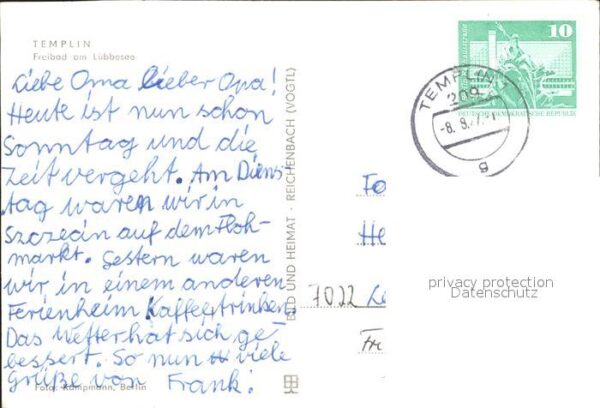 TEMPLIN
Freibad am Lübbesee
Liebe Oma lieber Opa!
Heute ist nun schon
Sonntag und die
Zeit vergeht. Am Diens-
tag waren wir in
Szczecin auf dem Floh-
markt. Gestern waren
wir in einem anderen
Ferienheim Kaffeetrinken.
Das Wetter hat sich ge-
bessert. So nun viele
Grüße von Frank!
Foto: Kampmann, Berlin
BILD UND HEIMAT · REICHENBACH (VOGTL)
10
DEUTSCHE DEMOKRATISCHE REPUBLIK
TEMPLIN 1
209
-8. 8.
g
Fa
He
7022 Le
Fr
privacy protection
Datenschutz